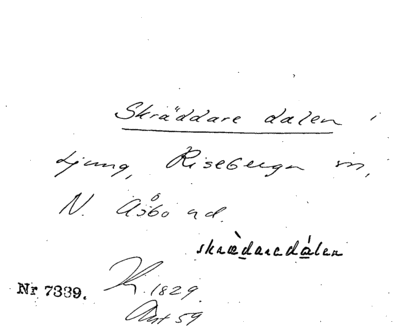 Skräddare dalen i
Ljung, Riseberga sn,
N. Åsbo hd.
skrädaredálen
Nr 7339. K 1829.
Ant 59